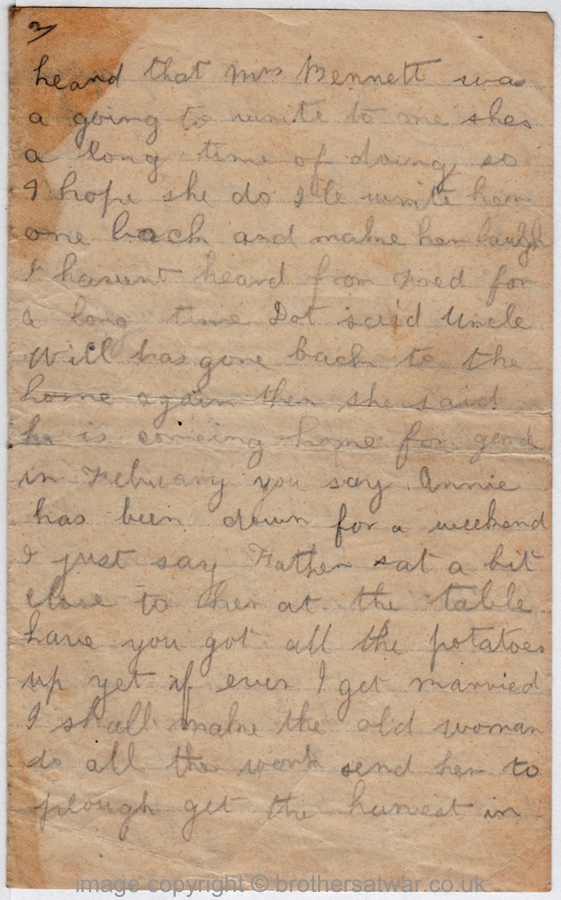 2/
heard that Mrs Bennett was
a going to write to me shes
a long time of doing so
I hope she do I le write her
one back and make her laugh
I havent heard from Fred for
a long time Dot said Uncle
Will has gone back to the
home again then she said
he is comeing home for good
in February you say Annie
has been down for a weekend
I just say Father sat a bit
close to her at the table
have you got all the potatoes
up yet if ever I get married
I shall make the old woman
do all the work send her to
plough get the harvest in
image copyright © brothersatwar.co.uk